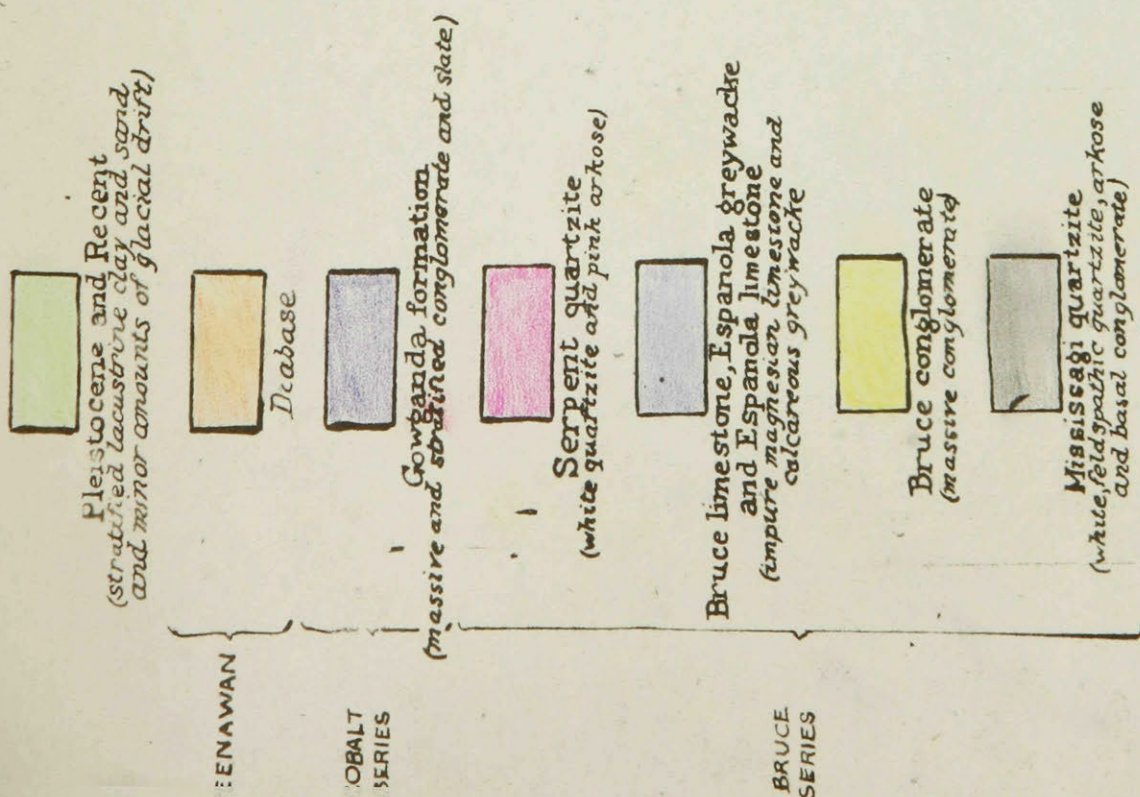 Pleistocene and Recent
(stratified lacustrine clay and sand
and minor amounts of glacial drift)
EENAWAN
Diabase
OBALT
SERIES
Gowganda formation
(massive and stratified conglomerate and slate)
BRUCE
SERIES
Serpent quartzite
(white quartzite and pink arkose)
Bruce limestone, Espanola greywacke
and Espanola limestone
(impure magnesian limestone and
calcareous greywacke
Bruce conglomerate
(massive conglomerate)
Mississagi quartzite
(white, feldspathic quartzite, arkose
and basal conglomerate)